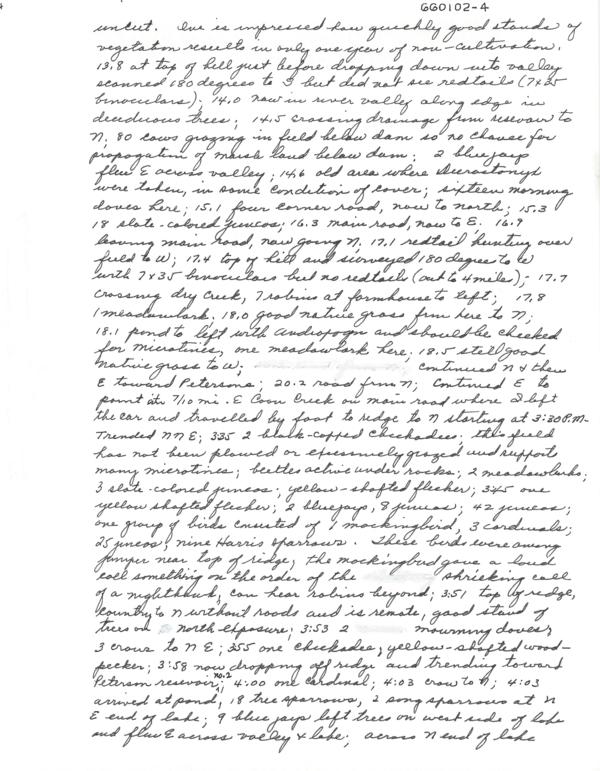 GG0102-4
uncut. One is impressed how quickly good stands of
vegetation results in only one year of non-cultivation.
13.8 at top of hill just before dropping down into valley
scanned 180 degrees to S but did not see redtails (7x35
binoculars); 14.0 now in river valley along edge in
deciduous trees; 14.5 crossing drainage from resevoir to
N; 80 cows grazing in field below dam so no chance for
propagation of marsh land below dam; 2 bluejays
flew E across valley; 14.6 old area where
were taken, in same condition of cover; sixteen morning
doves here; 15.1 four corner road, now to north; 15.3
18 slate-colored juncos; 16.3 main road, now to E. 16.9
leaving main road, now going N. 17.1 redtail hunting over
field to W; 17.4 top of hill and surveyed 180 degree to W
with 7x35 binoculars but no redtails (out to 4 miles); 17.7
crossing dry creek, 7 robins at farmhouse to left; 17.8
1 meadowlark. 18.0 good native grass from here to N;
18.1 pond to left with andropogn and should be checked
for microtines, one meadowlark here; 18.5 still good
native grass to W; continued N & then
E toward Petersons; 20.2 road from N; continued E to
point 7/10 mi. E Coon Creek on main road where I left
the car and travelled by foot to ridge to N starting at 3:30 P.M.
Trended NNE; 335 2 black-capped chickadees. this field
has not been plowed or excessively grazed and supports
many microtines; beetles active under rocks; 2 meadowlarks;
3 slate-colored juncos, yellow-shafted flicker; 345 one
yellow shafted flicker; 2 bluejays, 8 juncos; 42 juncos;
one group of birds consisted of 1 mockingbird, 3 cardinals;
25 juncos, nine Harris sparrows. These birds were among
juniper near top of ridge; the mockingbird gave a loud
call something on the order of the shrieking call
of a nighthawk; can hear robins beyond; 3:51 top of ridge,
country to N without roads and is remote, good stand of
trees on north exposure; 3:53 2 mourning doves;
3 crows to NE; 355 one chickadee, yellow-shafted wood-
pecker; 3:58 now dropping off ridge and trending toward
Peterson resevoir no. 2; 4:00 one cardinal; 4:03 crow to N; 4:03
arrived at pond, 18 tree sparrows, 2 song sparrows at N
E end of lake; 9 blue jays left trees on west side of lake
and flew E across valley & lake; across N end of lake